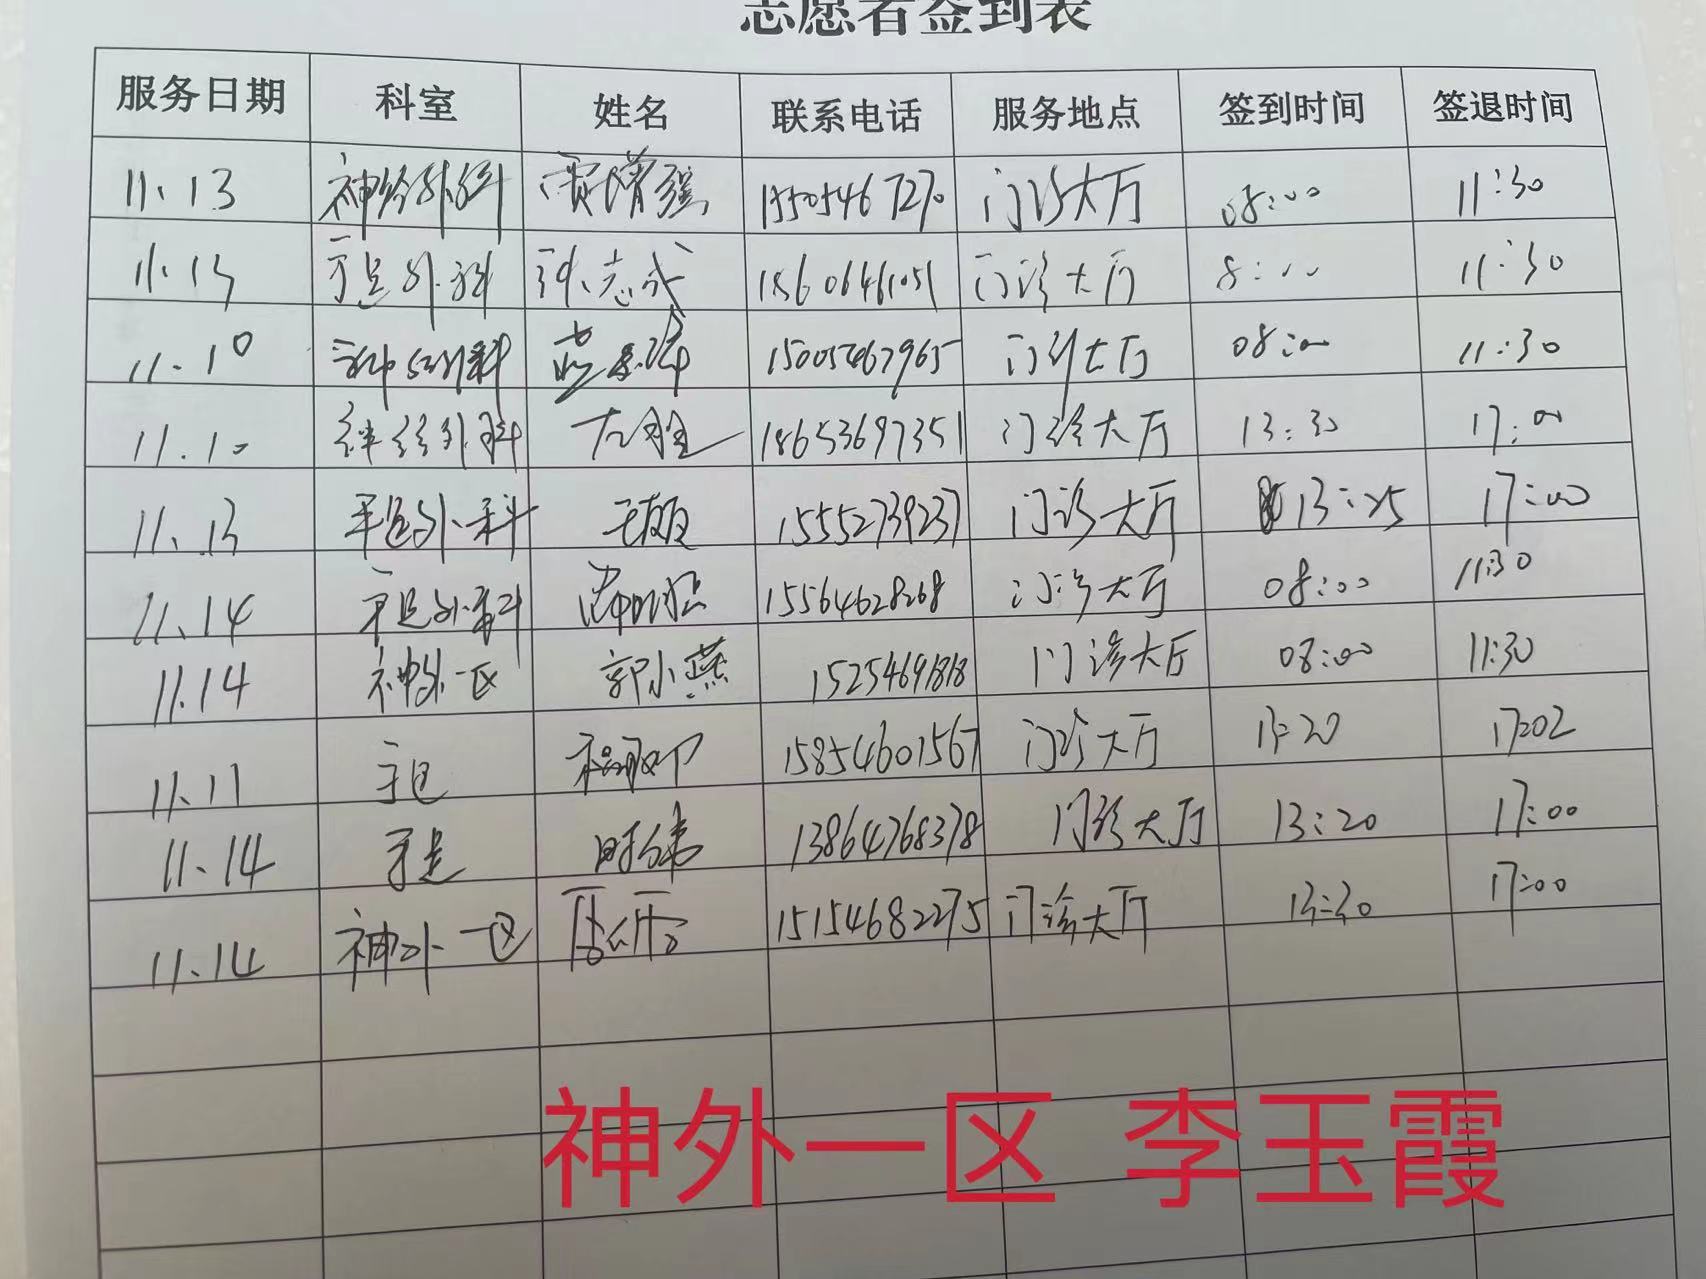 志愿者签到表
服务日期 科室 姓名 联系电话 服务地点 签到时间 签退时间
11.13 神经外科 贾增强 15505467270 门诊大厅 08:00 11:30
11.13 手足外科 志成 18606461051 门诊大厅 8:00 11:30
11.10 神经外科 15005467965 门诊大厅 08:00 11:30
11.10 神经外科 18653697351 门诊大厅 13:30 17:00
11.13 手足外科 15552739237 门诊大厅 13:25 17:00
11.14 手足外科 15564628268 门诊大厅 08:00 11:30
11.14 神外一区 郭小燕 15254691818 门诊大厅 08:00 11:30
11.11 手足 15854601567 门诊大厅 13:20 17:02
11.14 手足 时伟 13864768378 门诊大厅 13:20 17:00
11.14 神外一区 15154682275 门诊大厅 13:30 17:00
神外一区 李玉霞